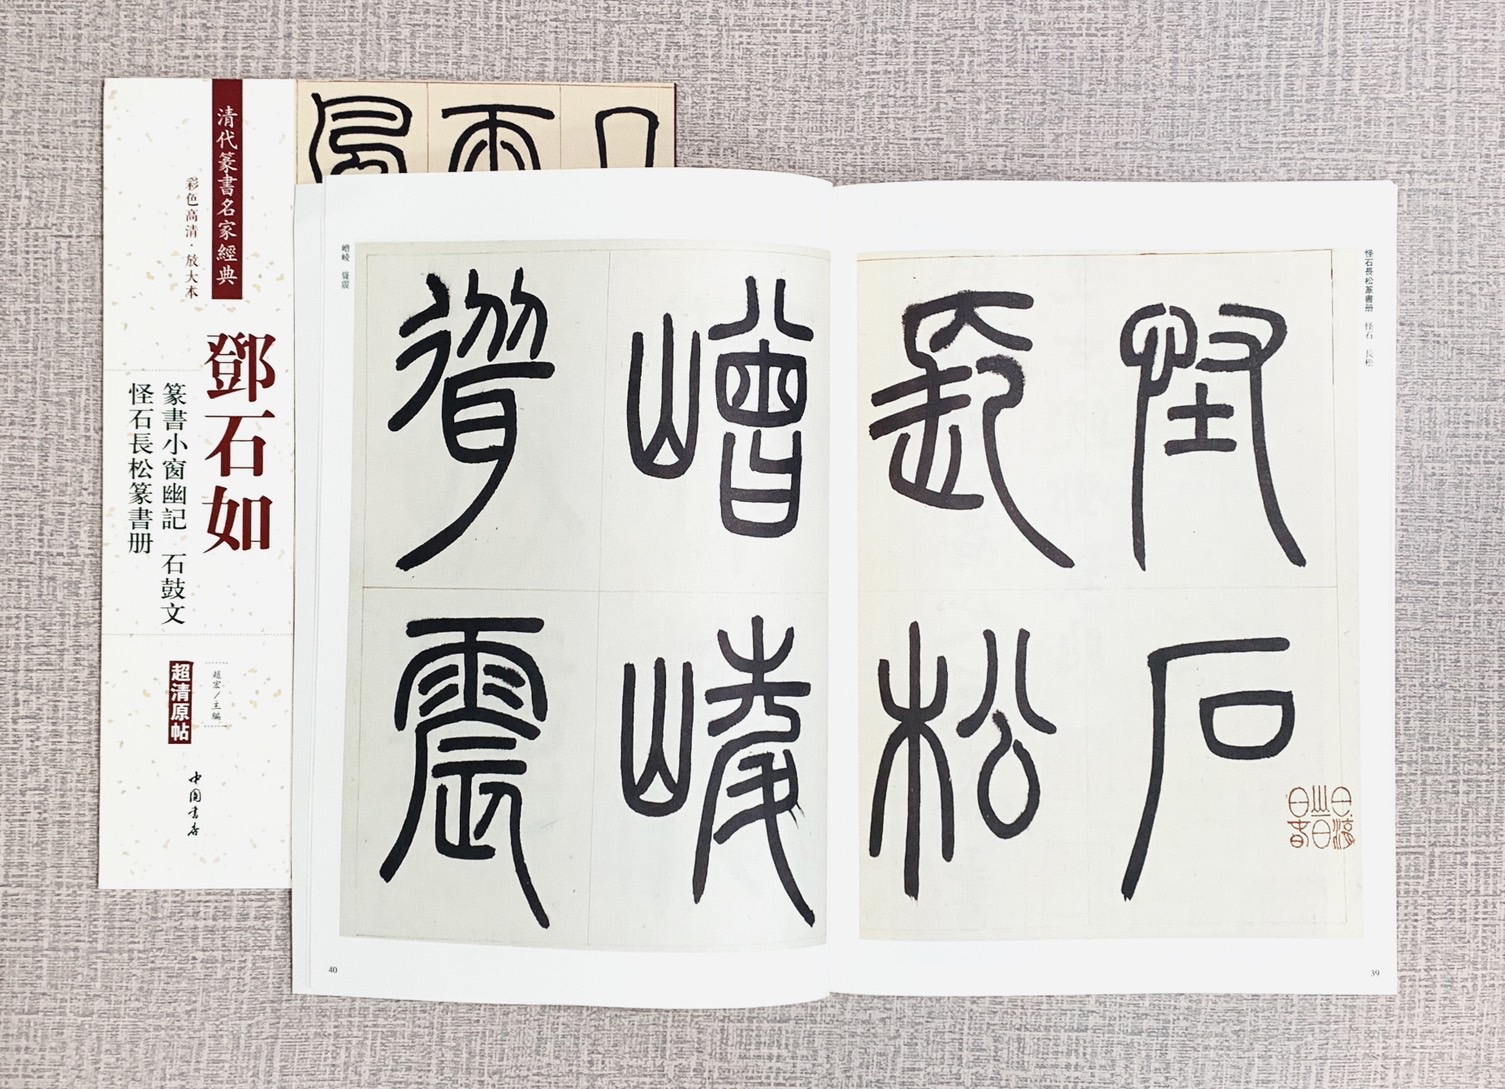 清代篆書名家經典
彩色高清·放大本
鄧石如
篆書小窗幽記 石鼓文
怪石長松篆書册
趙宏/主編
超清原帖
中國書店
怪石長松篆書册 怪石 長松
怪石
長松
39
嶒崚
聳震
嶒崚 聳震
40